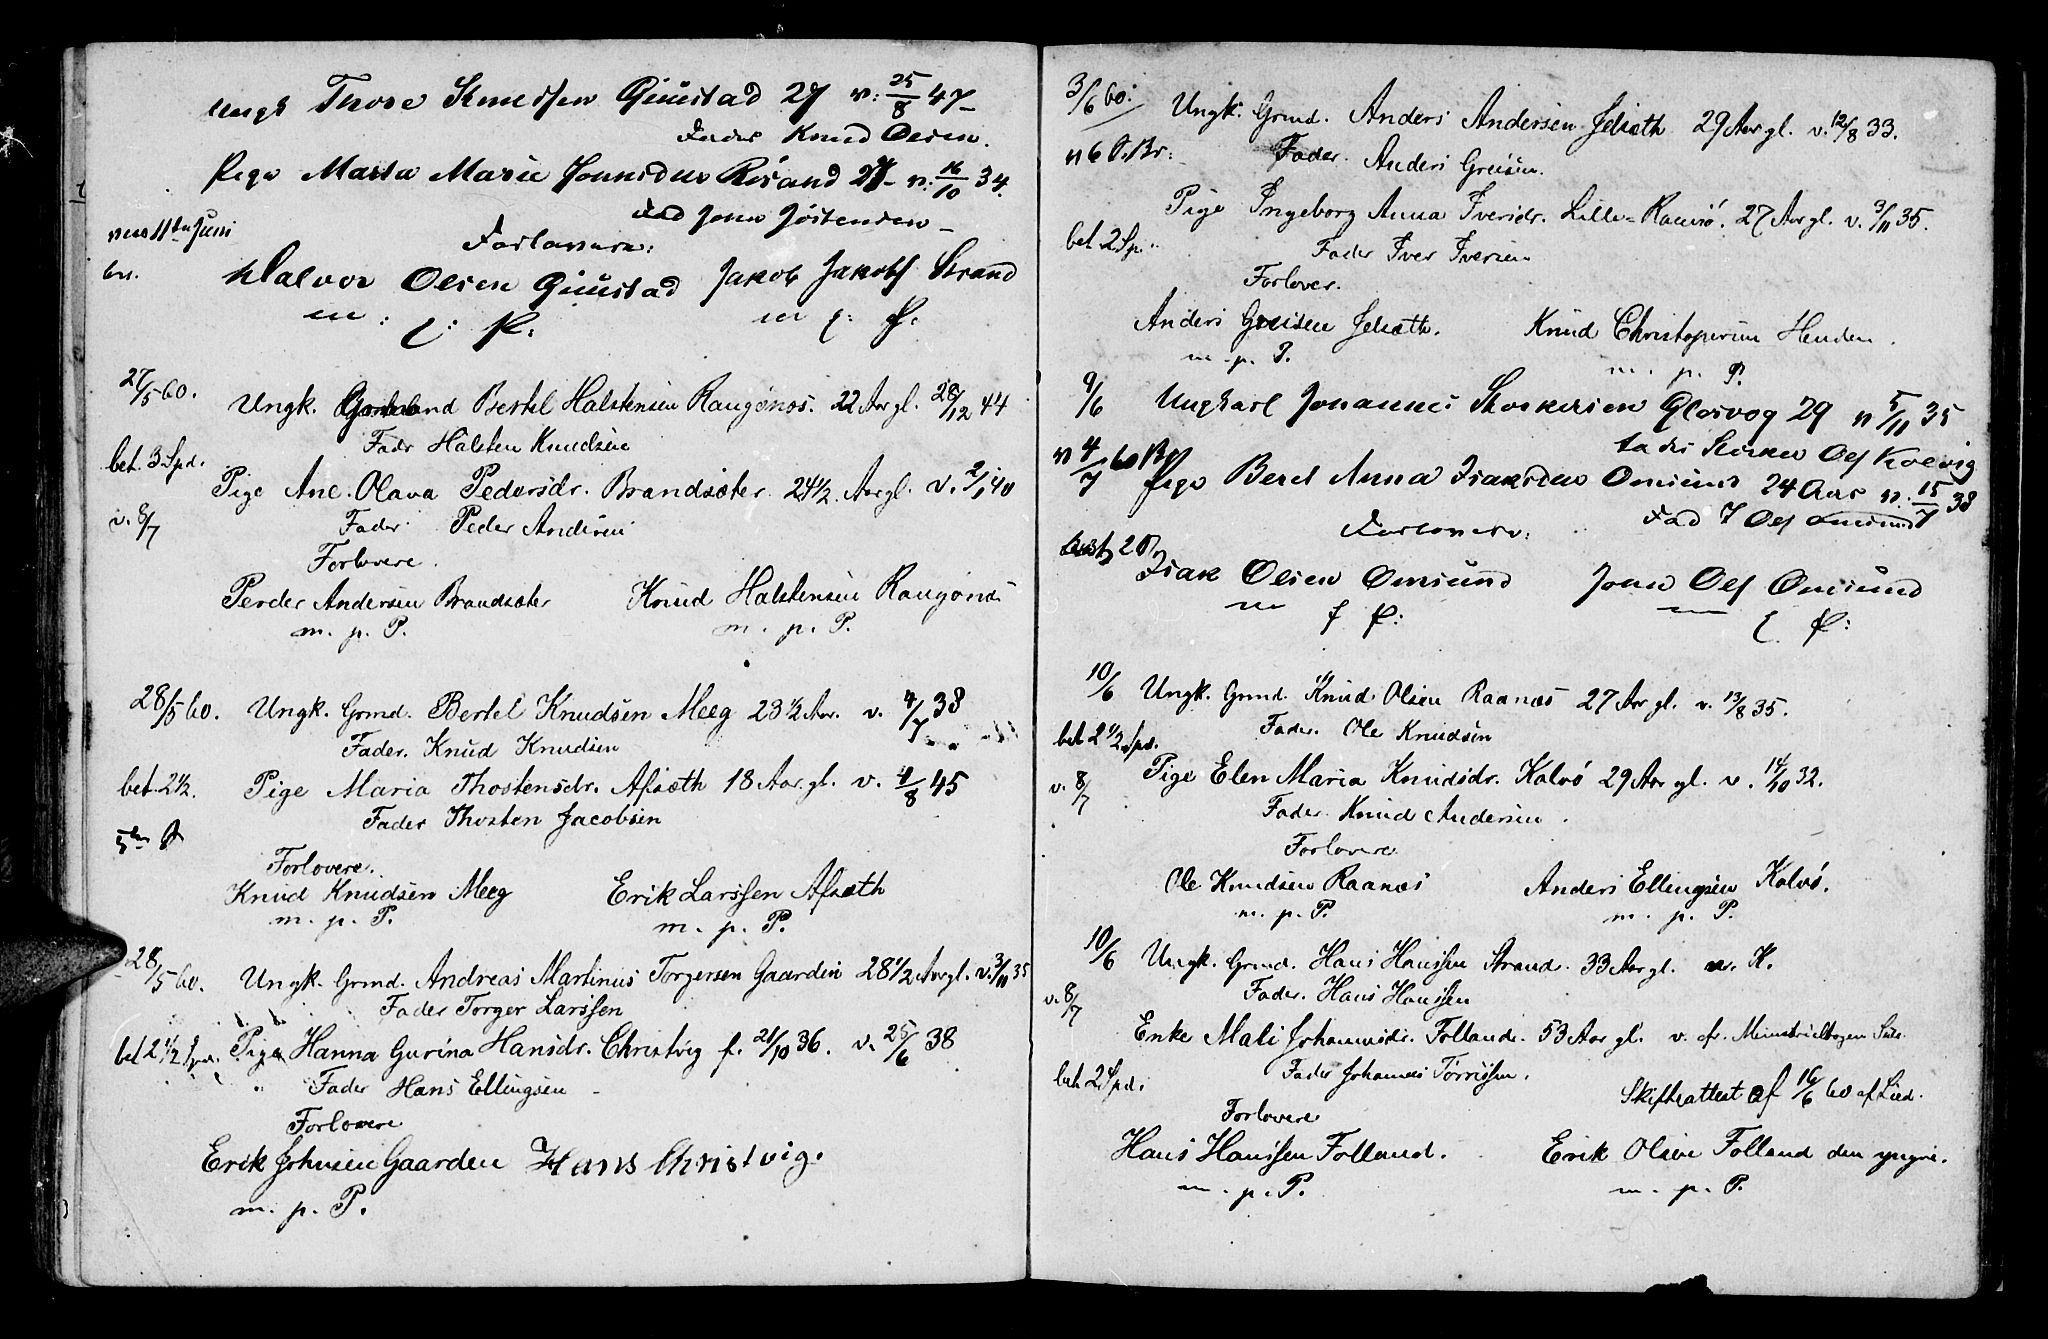 Ungk Knudsen Guüstad 27 v: 25/8 47-
Fader Knud Olsen.
Pige Marta Marie Jonnsdtr Røsand 27- v: 16/10 34.
Fad John Jöstensen -
11te Juni
Forlovere:
bet.
Halvor Olsen Guüstad Jakob Jakobs Strand
m: p: P: m p: P:
27/5 60.
Ungk. Bertel Halstensen Raugønæs. 22 Aar gl. 28/12 44
Fadr Halsten Knudsen
bet. 3 Spd.
Pige Ane. Olava Pedersdr. Brandsæter 24 1/2 Aar gl. v. 2/1 40
v. 8/7
Fader Peder Andersen
Forlovere.
Peder Andersen Brandsæter Knud Halstensen Raugønæs
m. p. P. m. p. P.
28/5 60. Ungk. Grmd. Bertel Knudsen Meeg 23 1/2 Aar. v. 4/7 38
Fader. Knud Knudsen
bet. 2 1/2. Pige Maria Thostensdr. Afsæth 18 Aar gl. v. 4/8 45
Fader Thosten Jacobsen
Forlovere.
Knud Knudsen Meeg Erik Larssen Afsæth
m. p. P. m. p. P.
28/5 60. Ungk. Grmd. Andreas Martinus Torgersen Gaarden 28 1/2 Aar gl. v. 3/11 35
Fader Torger Larssen
bet 2 1/2 Spd. Pige Hanna Gurina Hansdr. Christvig f. 21/10 36. v. 25/6 38
Fader Hans Ellingsen
Forlovere
Erik Johnsen Gaarden Hans Christvig.
m. p. P.
3/6 60. Ungk. Grmd. Anders Andersen Jelsæth 29 Aar gl. v. 12/8 33.
Fader. Anders Greisen.
Pige Ingeborg Anna Iversdr. Lille-Ramsö. 27 Aar gl. v. 3/11 35.
bet. 2 Sp.
Fader Iver Iversen
Forlover.
Anders Greisen Jelsæth. Knud Christopersen Henden.
m. p. P. m. p. P.
9/6 Ungkarl Johannes Glosvog 29 v 5/11 35
v 4/7 60
Pige Beret Anna Isaksdtr Omsund 24 Aar v. 15/7 38
Forlovere:
Isak Olsen Omsund John Ols Omsund
m p P: m p P:
10/6 Ungk. Grmd. Knud Olsen Raanæs 27 Aar gl. v. 13/8 35.
bet 2 1/2 Spd.
Fader. Ole Knudsen
Pige Elen Maria Knudsdr. Kalvö 29 Aar gl. v. 14/10 32.
v. 8/7
Fader. Knud Andersen.
Forlovere
Ole Knudsen Raanæs Anders Ellingsen Kalvö.
m. p. P. m. p. P.
10/6 Ungk. Grmd. Hans Hanssen Strand. 33 Aar gl. v. K.
Fader. Hans Hanssen
v. 8/7
Enke Mali Johannesdr. Folland. 53 Aar gl. v. efr. Ministerialbogen
bet 2 Spd.
Fader Johannes Törrissen.
Skifteattest af 16/6 60 af
Forlovere
Hans Hanssen Folland. Erik Olsen Folland den yngre.
m. p. P. m. p. P.